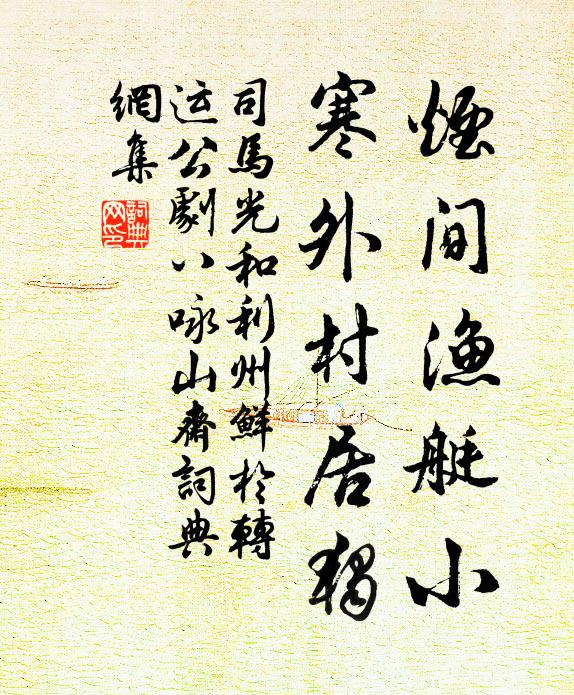 煙間漁艇小
寒外村居獨
司馬光和利州鮮於轉
运公劇八咏山齋詞典
網集
詞典
网印